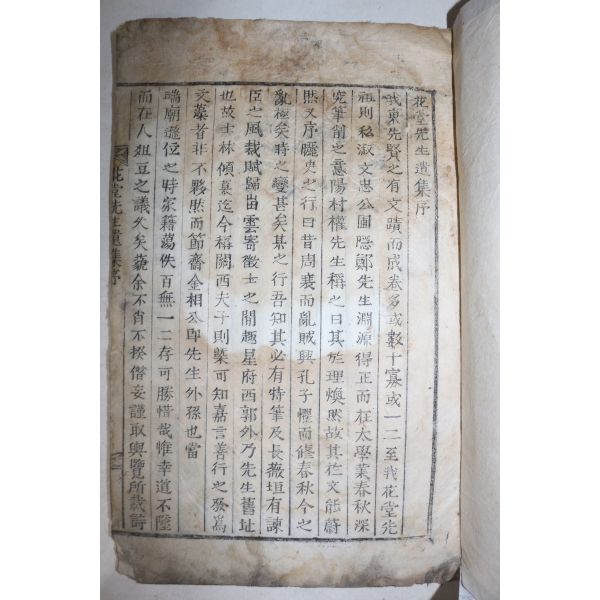 花堂先生遺集序
我東先賢之有文蹟而成卷多或數十寡或一二至我花堂先
祖則私淑文忠公圃隱鄭先生淵源得正而在太學業春秋深
究筆削之意陽村權先生稱之曰其於理煥然故其於文能蔚
然又序曬史之行曰昔周衰而亂賊興孔子懼而修春秋今之
亂極矣時之變甚矣某之行吾知其必有特筆及長薇垣有諫
臣之風裁賦歸出雲寄徵士之閒趣星府西郭外乃先生舊址
也故士林傾慕迄今稱關西夫子則槩可知嘉言善行之發爲
文藁者非不夥然而節齋金相公卽先生外孫也當
端廟遜位之時家籍蕩佚百無一二存可勝惜哉惟幸道不墜
而在人俎豆之議久矣藐余不肖不揆僭妄謹取輿覽所載詩
花堂先生遺集序